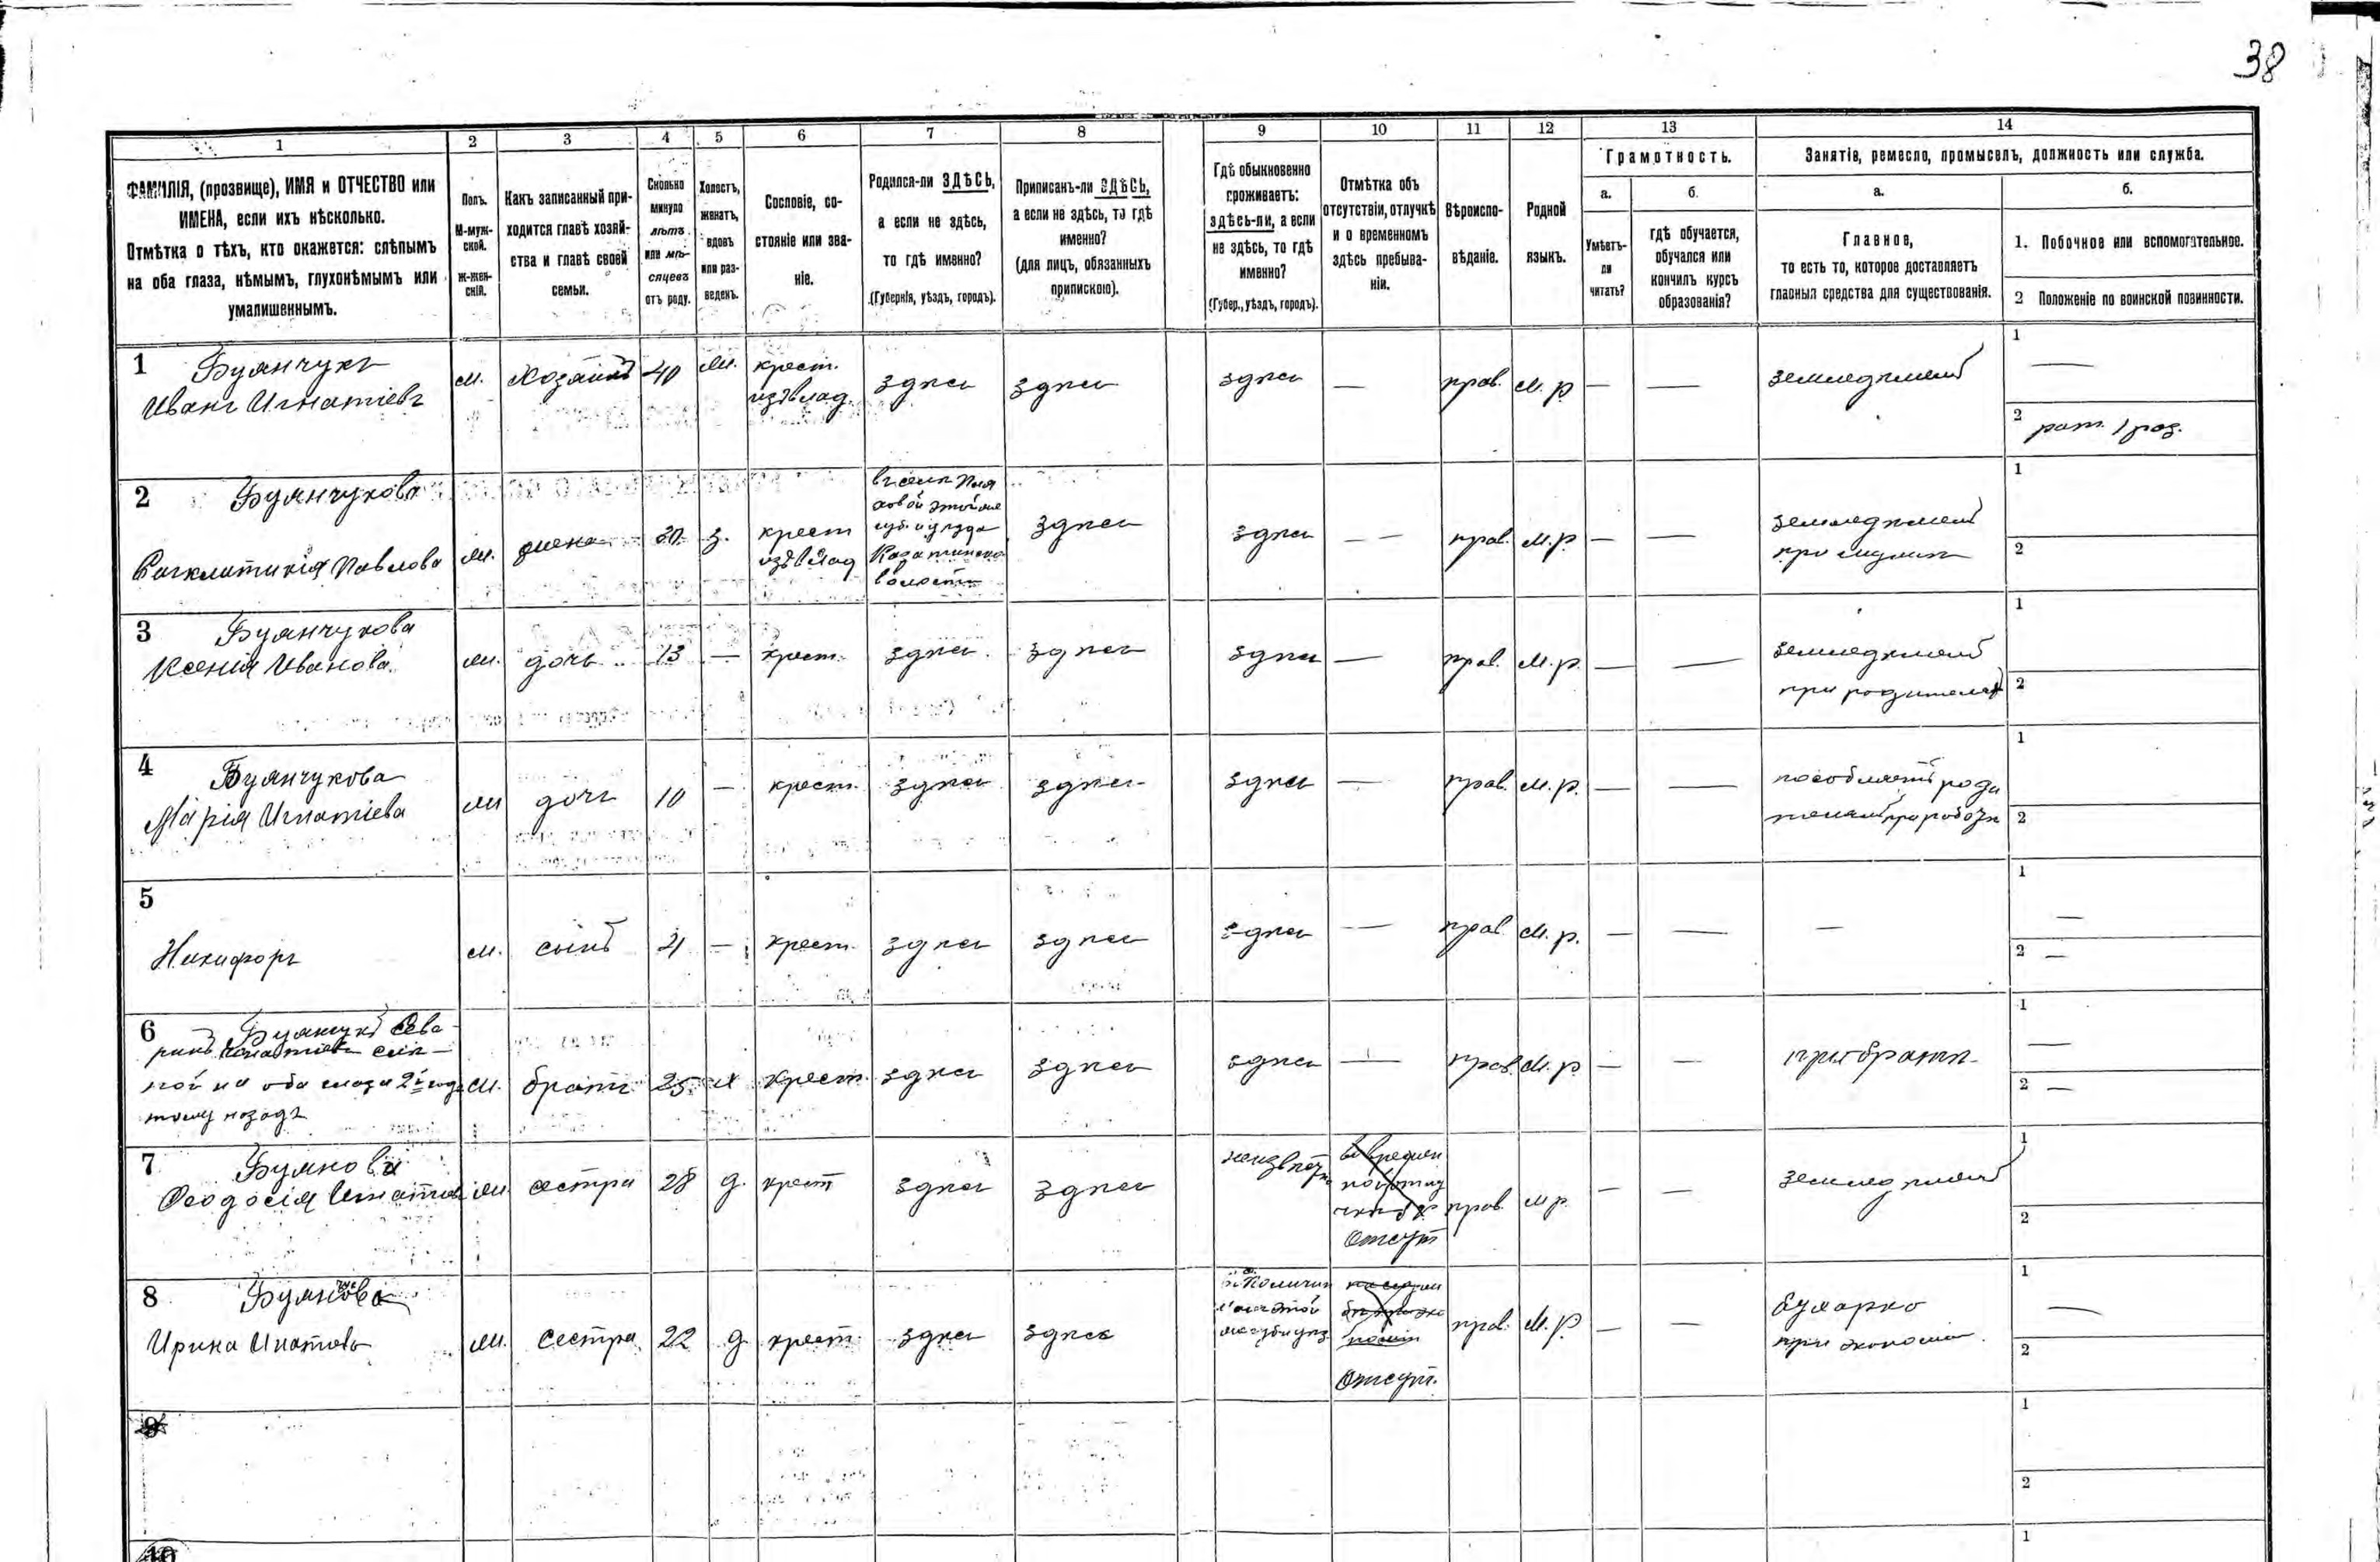 38
1 2 3 4 5 6 7 8 9 10 11 12 13 14
ФАМИЛІЯ, (прозвище), ИМЯ и ОТЧЕСТВО или
ИМЕНА, если ихъ нѣсколько.
Отмѣтка о тѣхъ, кто окажется: слѣпымъ
на оба глаза, нѣмымъ, глухонѣмымъ или
умалишеннымъ.
Полъ.
М-муж-
ской.
Ж-жен-
скій.
Какъ записанный при-
ходится главѣ хозяй-
ства и главѣ своей
семьи.
Сколько
минуло
лѣтъ
или мѣ-
сяцевъ
отъ роду.
Холостъ,
женатъ,
вдовъ
или раз-
веденъ.
Сословіе, со-
стояніе или зва-
ніе.
Родился-ли ЗДѢСЬ,
а если не здѣсь,
то гдѣ именно?
(Губернія, уѣздъ, городъ).
Приписанъ-ли ЗДѢСЬ,
а если не здѣсь, то гдѣ
именно?
(для лицъ, обязанныхъ
припискою).
Гдѣ обыкновенно
проживаетъ:
здѣсь-ли, а если
не здѣсь, то гдѣ
именно?
(Губер., уѣздъ, городъ).
Отмѣтка объ
отсутствіи, отлучкѣ
и о временномъ
здѣсь пребыва-
ніи.
Вѣроиспо-
вѣданіе.
Родной
языкъ.
Грамотность.
а.
Умѣетъ-
ли
читать?
б.
гдѣ обучается,
обучался или
кончилъ курсъ
образованія?
Занятіе, ремесло, промыселъ, должность или служба.
а.
Главное,
то есть то, которое доставляетъ
главныя средства для существованія.
б.
1. Побочное или вспомогательное.
2 Положеніе по воинской повинности.
1 Буянчукъ
Иванъ Игнатіевъ
м. Хозяинъ 40 крест.
из влад. здѣсь здѣсь здѣсь — прав. м. р. — — земледѣлецъ
1 —
2 рат. 1 раз.
2 Буянчукова
Павлова
жена 30 з. крест
из влад
волости
здѣсь здѣсь — — прав. м.р. — — земледѣлецъ
при
1
2
3 Буянчукова
Ксенія Иванова
дочь 13 — крест. здѣсь здѣсь здѣсь — прав. м.р. — — земледѣлецъ
при родителяхъ
1
2
4 Буянчукова
Марія Игнатіева
дочь 10 — крест. здѣсь здѣсь здѣсь — прав. м.р. — — пособляетъ роди
телямъ при роботѣ
1
2
5
Никифоръ м. сынъ 4 — крест. здѣсь здѣсь здѣсь — прав. м. р. — — —
1 —
2 —
6 Буянчукъ Севе-
ринъ Игнатіевъ слѣ-
пой на оба глаза 2й годъ
тому назадъ
м. братъ 25 х крест. здѣсь здѣсь здѣсь — прав. м. р. — — при братѣ
1 —
2 —
7 Буянова
Феодосія
сестра 28 д. крест здѣсь здѣсь неизвѣстн
Отсут
прав. м р. — — земледѣлецъ
1
2
8
Ирина
сестра 22 д. крест. здѣсь здѣсь
Отсут.
прав. м. р. — —
при экономіи
1 —
2
9
1
2
10
1